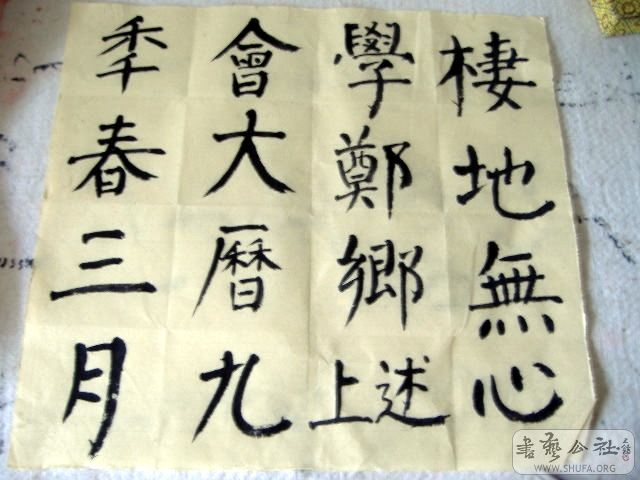 棲地無心
學鄭鄉述上
會大曆九
秊春三月
書藝公社
WWW.SHUFA.ORG